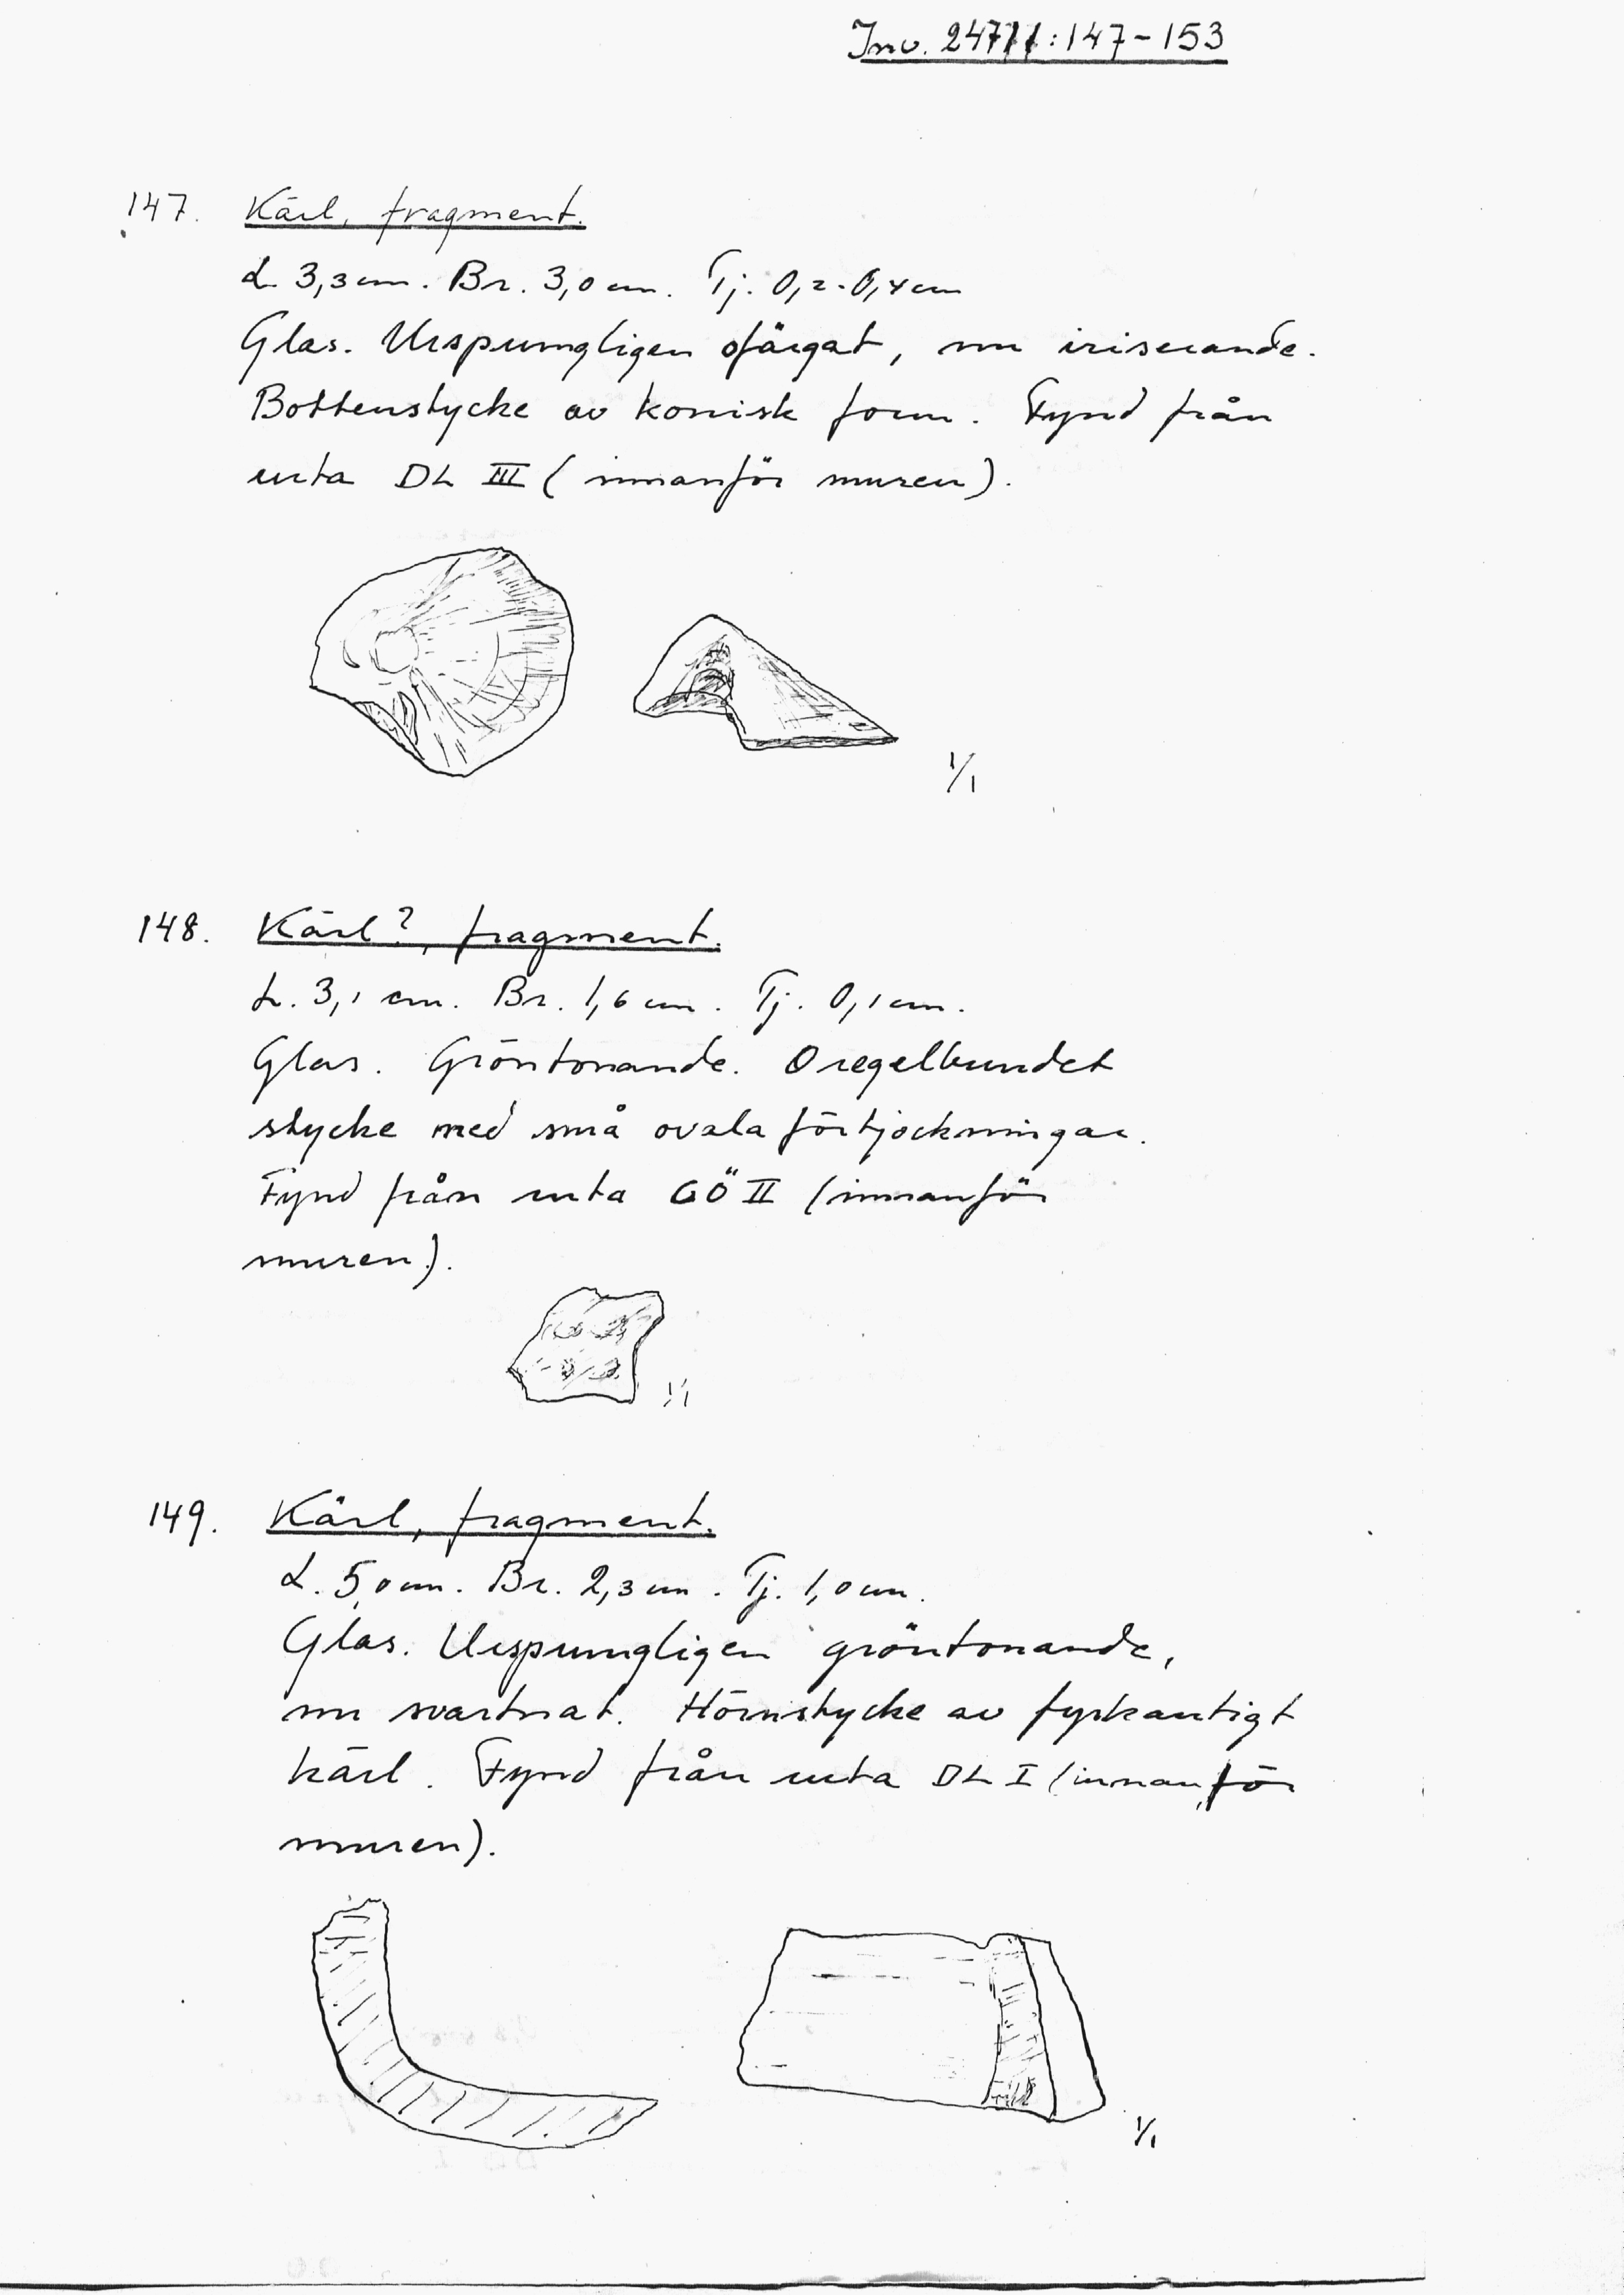 Inv. 24711:147-153
147. Kärl, fragment.
L. 3,3 cm. Br. 3,0 cm. Tj. 0,2-0,4 cm
Glas. Ursprungligen ofärgat, nu iriserande.
Bottenstycke av konisk form. Fynd från
ruta DL III (innanför muren).
1/1
148. Kärl?, fragment.
L. 3,1 cm. Br. 1,6 cm. Tj. 0,1 cm.
Glas. Gröntonande. Oregelbundet
stycke med små ovala förtjockningar.
Fynd från ruta GÖ II (innanför
muren).
1/1
149. Kärl, fragment.
L. 5,0 cm. Br. 2,3 cm. Tj. 1,0 cm.
Glas. Ursprungligen gröntonande,
nu svartnat. Hörnstycke av fyrkantigt
kärl. Fynd från ruta DL I (innanför
muren).
1/1